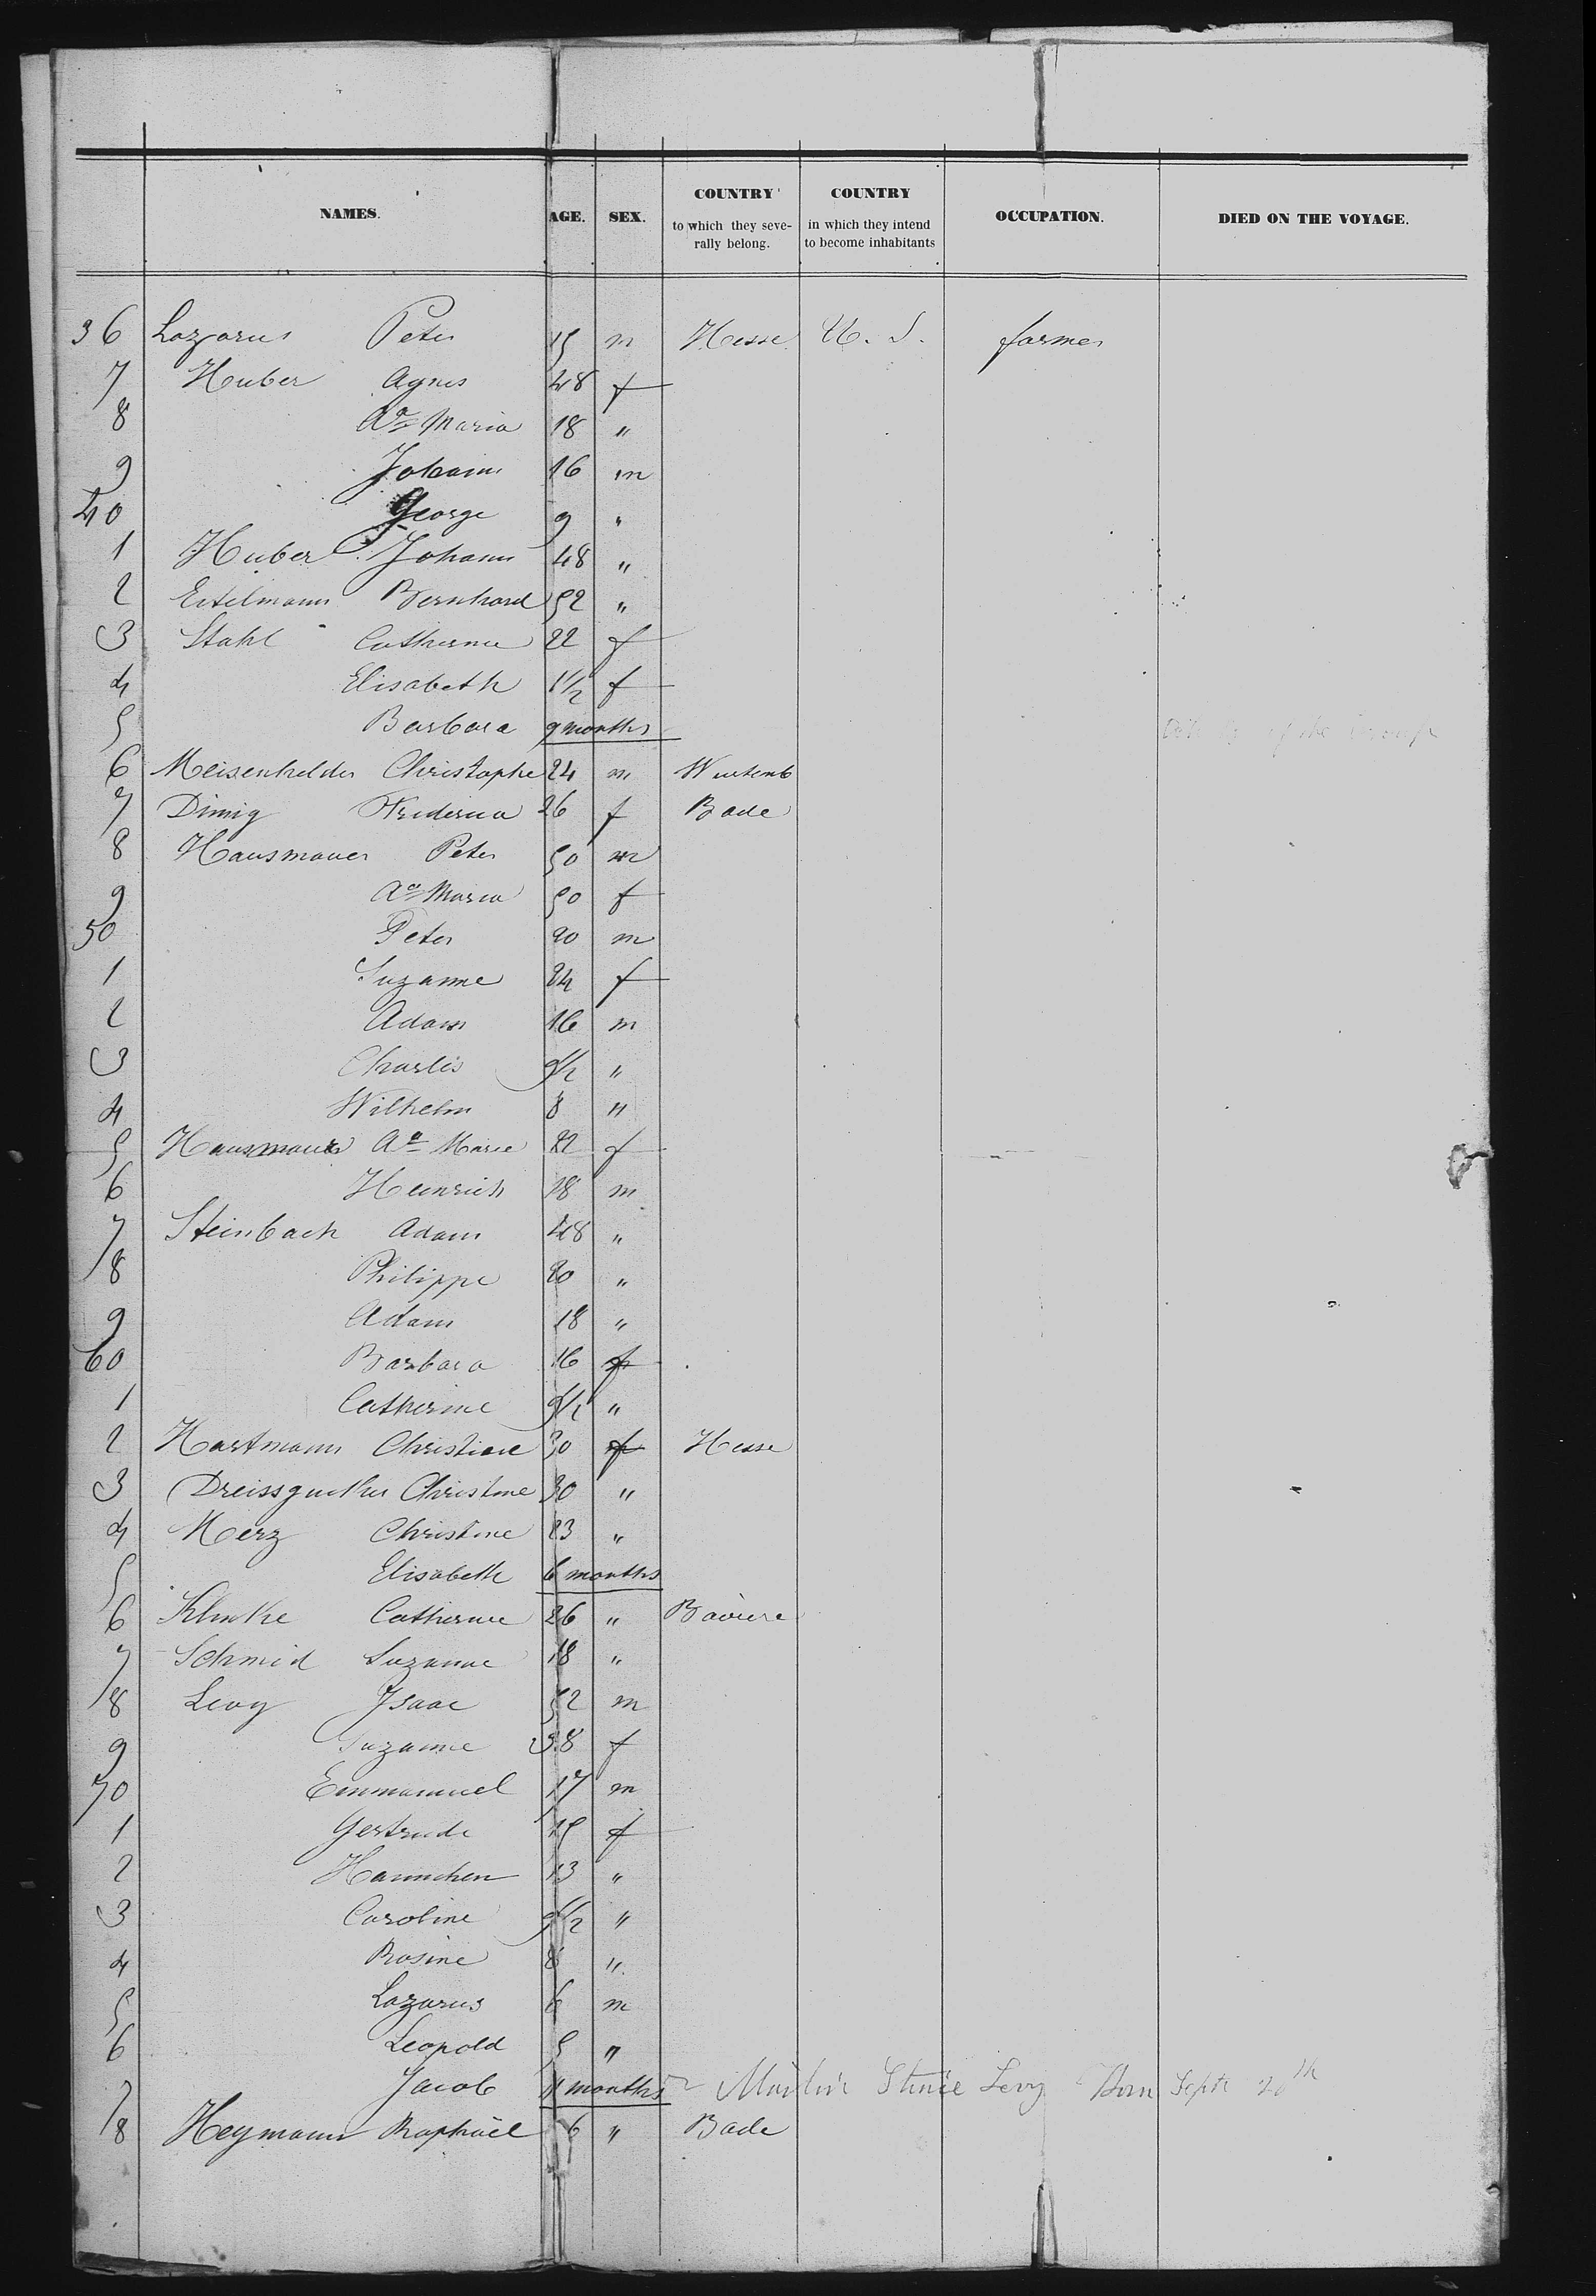 NAMES. AGE. SEX. COUNTRY to which they seve- rally belong. COUNTRY in which they intend to become inhabitants OCCUPATION. DIED ON THE VOYAGE.
36 Lazarus Peter 15 m Hesse U. S. farmer
7 Huber Agnes 48 f
8 Aa Maria 18 "
9 Johann 16 m
40 George 9 "
1 Huber Johann 48 "
2 Eitelmann Bernhard 52 "
3 Stahl Catherine 22 f
4 Elisabeth 1 1/2 f
5 Barbara 9 months
6 Meisenhelder Christophe 24 m Wurtemb
7 Dimig Frederica 26 f Bade
8 Hausmauer Peter 50 m
9 Aa Maria 50 f
50 Peter 20 m
1 Suzanne 24 f
2 Adam 16 m
3 Charles 9 1/2 "
4 Wilhelm 8 "
5 Hausmauer Aa Marie 22 f
6 Heinrich 18 m
7 Steinbach Adam 48 "
8 Philippe 20 "
9 Adam 18 "
60 Barbara 16 f
1 Catherine 9 1/2 "
2 Hartmann Christiane 30 f Hesse
3 Christine 30 "
4 Merz Christine 23 "
5 Elisabeth 6 months
6 Klinke Catherine 26 " Baviere
7 Schmid Suzanne 18 "
8 Levy Isaac 52 m
9 Suzanne 38 f
70 Emmanuel 17 m
1 Gertrude 15 f
2 Hannchen 13 "
3 Caroline 9 1/2 "
4 Rosine 8 "
5 Lazarus 6 m
6 Leopold 5 "
7 Jacob 11 months Levy Born Septr 20th
8 Heymann Raphaël 6 " Bade